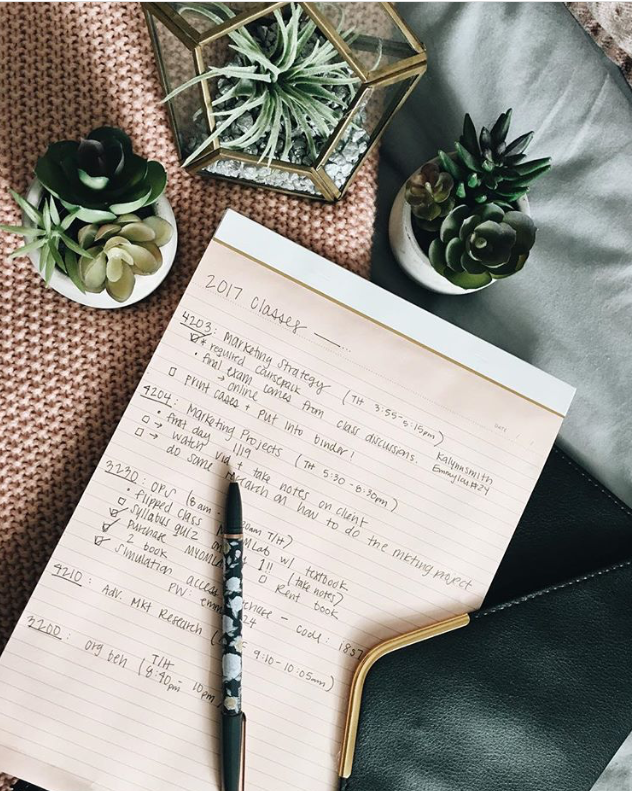 2017 Classes
DATE
4203: Marketing Strategy (TH 3:55-5:15pm)
* required coursepack
• final exam comes from class discussions.
→ online
Kalynnsmith
print cases + put into binder!
4204: Marketing Projects (TH 5:30-6:30pm)
• first day 1/19
→ watch vid + take notes on client
→ do some research on how to do the mkting project
3230: ops (8am - T/H)
• flipped class w/ textbook
syllabus quiz 1!! (take notes)
purchase Rent book
2 book
simulation access purchase - code: 1857
PW: 24
4210: Adv. Mkt Research ( 9:10-10:05am)
3200: org beh (T/H 8:40pm - 10pm)